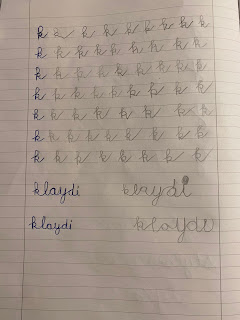 k k k k k k k k k
k k k k k k k k k
k k k k k k k k k
k k k k k k k k k
k k k k k k k k k
k k k k k k k k k
k k k k k k k k k
klaydi klaydi
klaydi klaydi